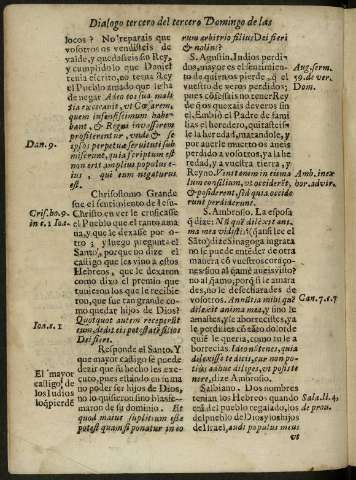 Dialogo tercero del tercero Domingo de las
locos? No reparais que
vosotros os vendisteis de
valde, y quedasteis sin Rey,
y cumplido lo que Daniel
tenia escrito, no tenra Rey
el Pueblo amado que le ha
de negar Adeo eos sua mali
tia execravit, ut Cæsarem,
quem infensissimum habe-
bant, & Regni invasorem
profiterentur, unde & se
ipsos perpetuæ servituti sub
miserunt, quia scriptum est
non erit amplius populus e-
ius, qui eum negaturus
est.
Dan. 9.
Chrisostomo Grande
fue el sentimiento de Iesu-
Christo en ver le crucificaße
el Pueblo que el tanto ama
na, y que le dexaße por o-
tro; y luego pregunta el
Santo, porque no dize el
castigo que les vino a estos
Hebreos, que le dexaron
como dixo el premio que
tuvieron los que le recibie-
ron, que fue tan grande co-
mo quedar hijos de Dios?
Quotquot autem receperūt
eum, dedit eis potestatē filios
Dei fieri.
Crisf. ho. 9.
in c. 1 Ioa.
Ioa. c. 1
Responde el Santo. Y
que mayor castigo se puede
dezir que su hecho les exe-
cuto, pues estando en su ma
no poder ser hijos de Dios,
no lo quisieron sino blasfe-
maron de su dominio. Et
quod maius supplitium esse
potest quam si ponatur in eo
El mayor
castigo de
los Iudios
loq̄ pierdē
rum arbitrio filius Dei fieri
& nolint?
S. Agustin. Indios perdi-
dos, mayor es el sentimien-
to de quien os pierde, q̄ el
vuestro de veros perdidos;
Aug. serm.
59. de ver.
Dom.
de q̄ os quexais deveros sin
el. Embiò el Padre de fami
lias el heredero, quitasteis-
le la herdad, matandole, y
por averle muerto os aveis
perdido a vosotros, ya la he
redad, y a vuestra tierra, y
Reyno.
consilium, ut occiderēt,
& possiderent, sed quia occide
runt perdiderunt.
Amb. inex
hor. advir.
S. Ambrosio. La esposa
q̄ dize: Nū quē diligit ani-
ma mea vidistis; (ansi lee el
Sāto) dize Sinagoga ingrata
no le puede entēder de otra
manera cō vuestros corāço-
nes, sino al q̄ amè aueis visto?
no al q̄ amo, porq̄ si le amara
des, no le desecharades de
vosotros.
dilexit anima mea, y sino le
amasteis, y le aborrecistes, ya
le perdistes cō essa dolor de
quiē le queria, como tu le a
borrecias.
dilexisse te dicis, cur non po-
tius adhuc diliges, en posiste
nere, dize Ambrosio.
Can. 7. c. 7
Salbiano. Dos nombres
tenian los Hebreos quando
el pueblo regalado, los
del pueblo de Dios y los hijos
de Israel, audi populus meus
Sala. li. 4.
de prou.
ut